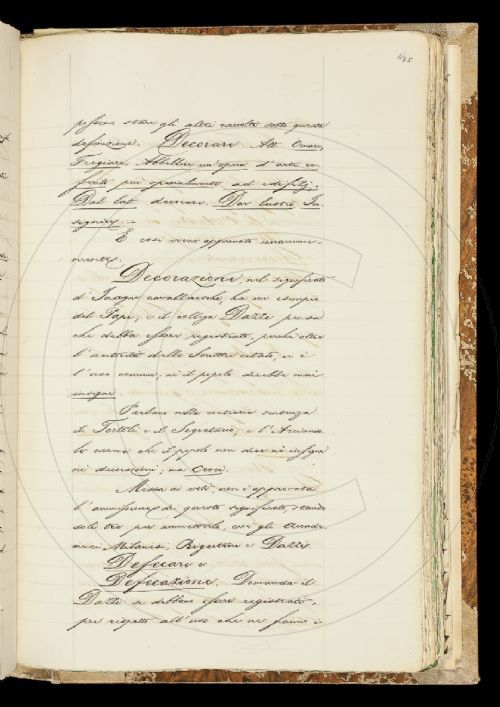 1135
possono stare gli altri raccolti sotto questa
definizione. Decorare Att. Ornare,
Fregiare, Abbellire un'opera d'arte
più specialmente ad edifizj.
Dal lat. decorare. Dar lustro, In-
signire. —
E così viene approvato unanime-
mente.
Decorazione, nel significato
d'Insegne cavalleresche, ha un esempio
del Papi; e il collega Dazzi pensa
che debba essere registrato, perché oltre
l'autorità dello Scrittore citato, vi è
l'uso comune; nè il popolo direbbe mai
insegne.
Parlano nella contraria sentenza
il Tortoli e il Segretario, e l'Arciconso-
lo osserva che il popolo non dice nè insegne
nè decorazioni, ma Croci.
Messa ai voti, non è approvata
l'ammissione di questo significato, stando
solo tre per ammetterla, cioè gli Accade-
mici Milanesi, Rigutini e Dazzi.
Defecare e
Defecazione. Domanda il
Dazzi se debbano essere registrati,
per rispetto all'uso che ne fanno i